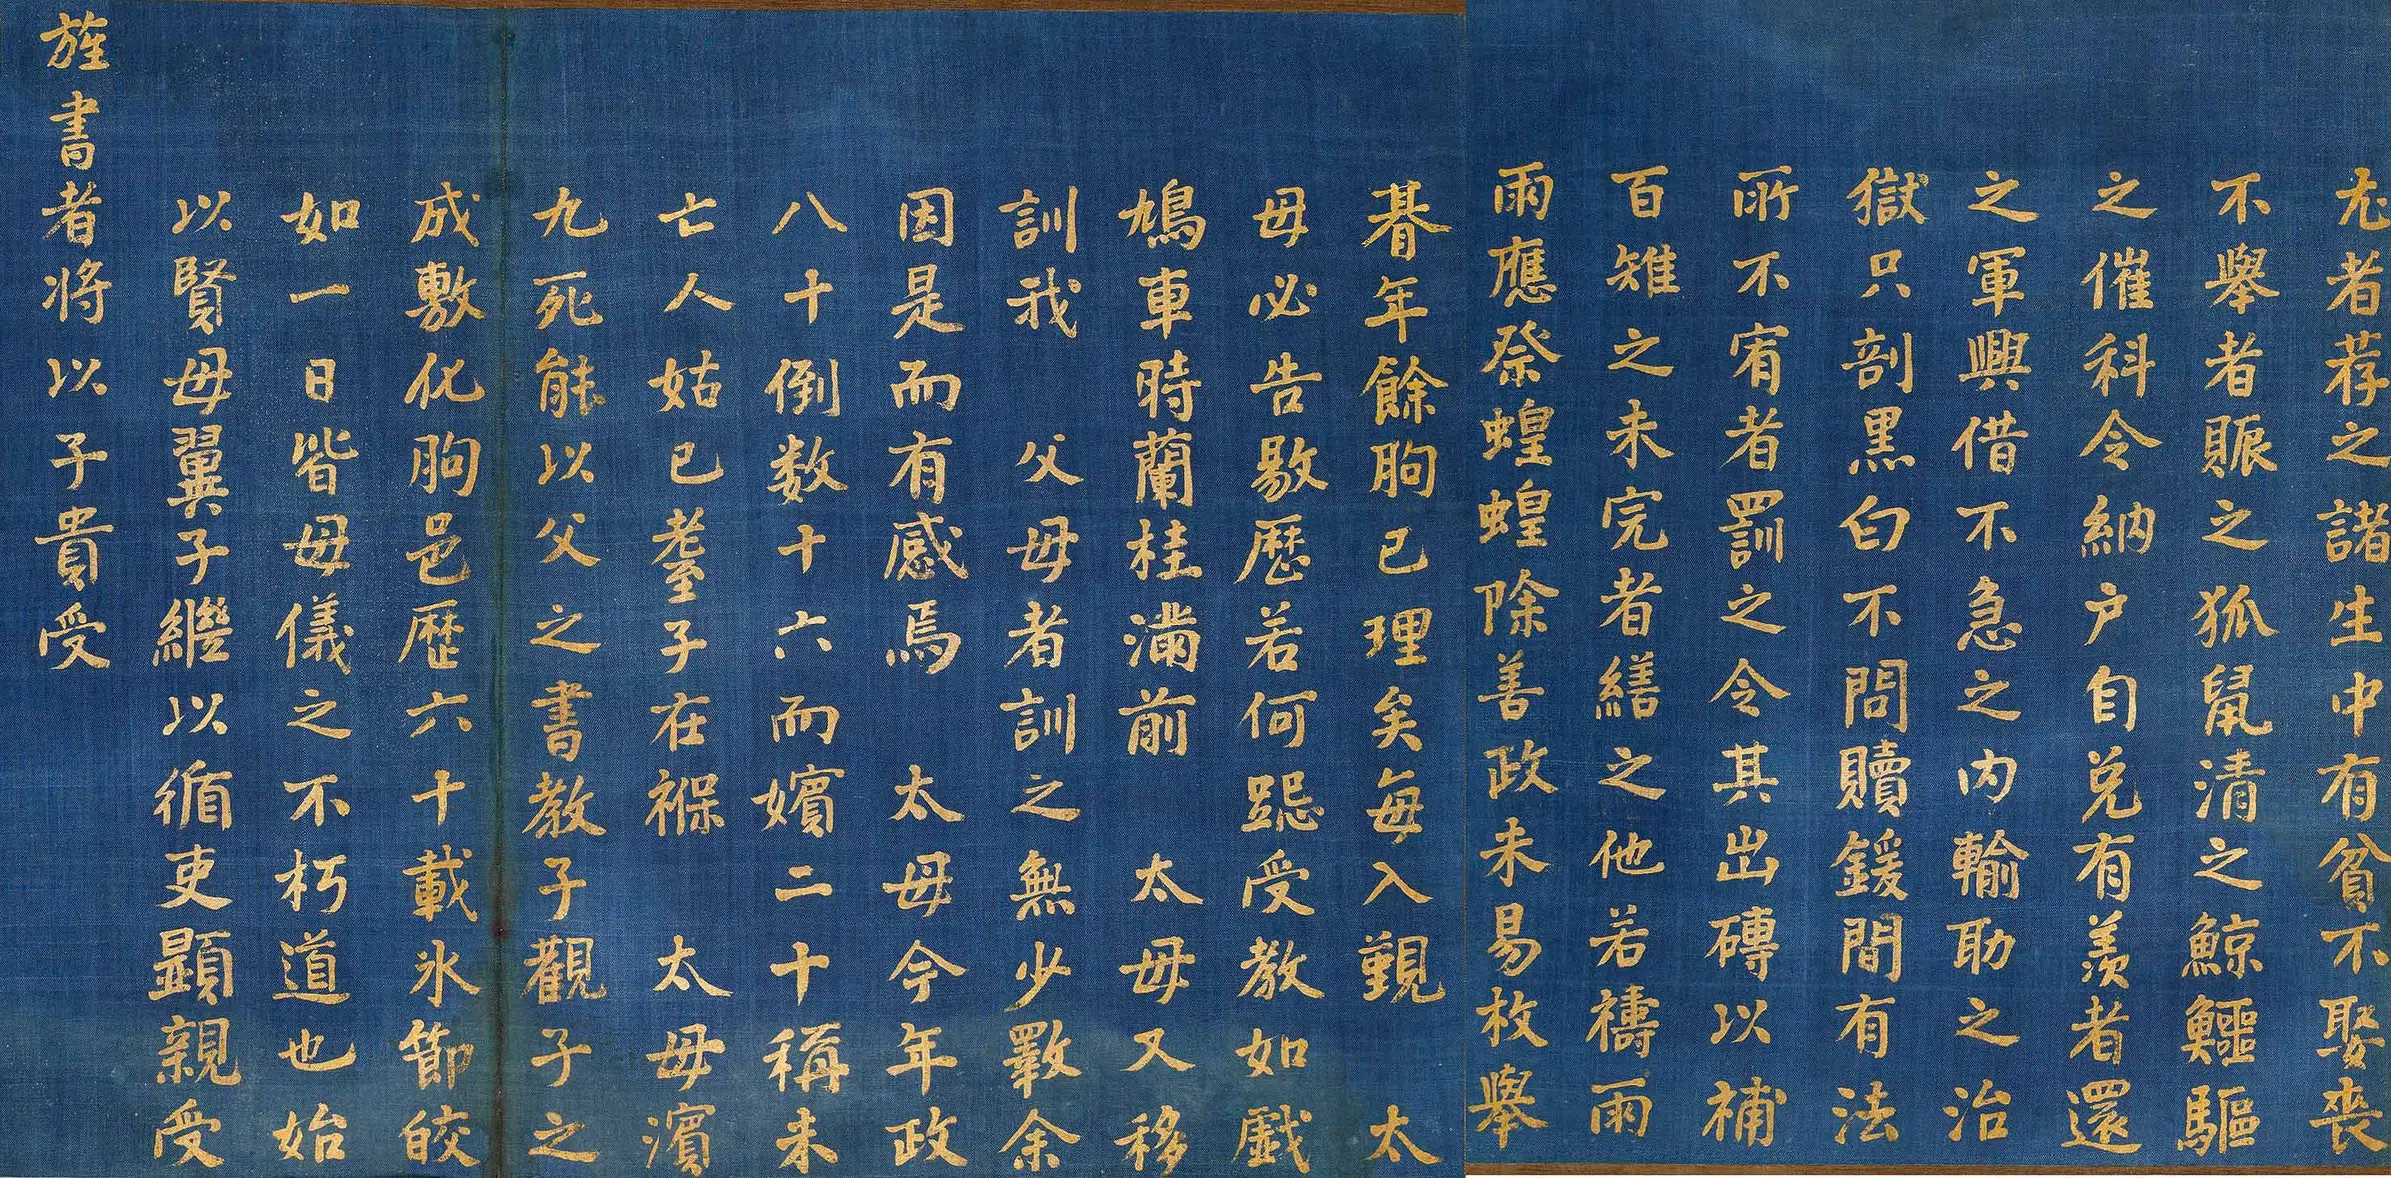 尤者荐之諸生中有貧不娶喪
不舉者賑之狐鼠清之鯨鱷驅
之催科令納戶自兌有羨者還
之軍興借不急之內輸助之治
獄只剖黑白不問贖鍰間有法
所不宥者罰之令其出磚以補
百雉之未完者繕之他若禱雨
雨應祭蝗蝗除善政未易枚舉
朞年餘朐已理矣每入覲 太
母必告敭歷若何跽受教如戲
鳩車時蘭桂滿前 太母又移
訓我 父母者訓之無少斁余
因是而有感焉 太母今年政
八十倒数十六而嬪二十稱未
亡人姑已耋子在褓 太母濱
九死能以父之書教子觀子之
成敷化朐邑歷六十載氷節皎
如一日皆母儀之不朽道也始
以賢母翼子繼以循吏顯親受
旌書者將以子貴受